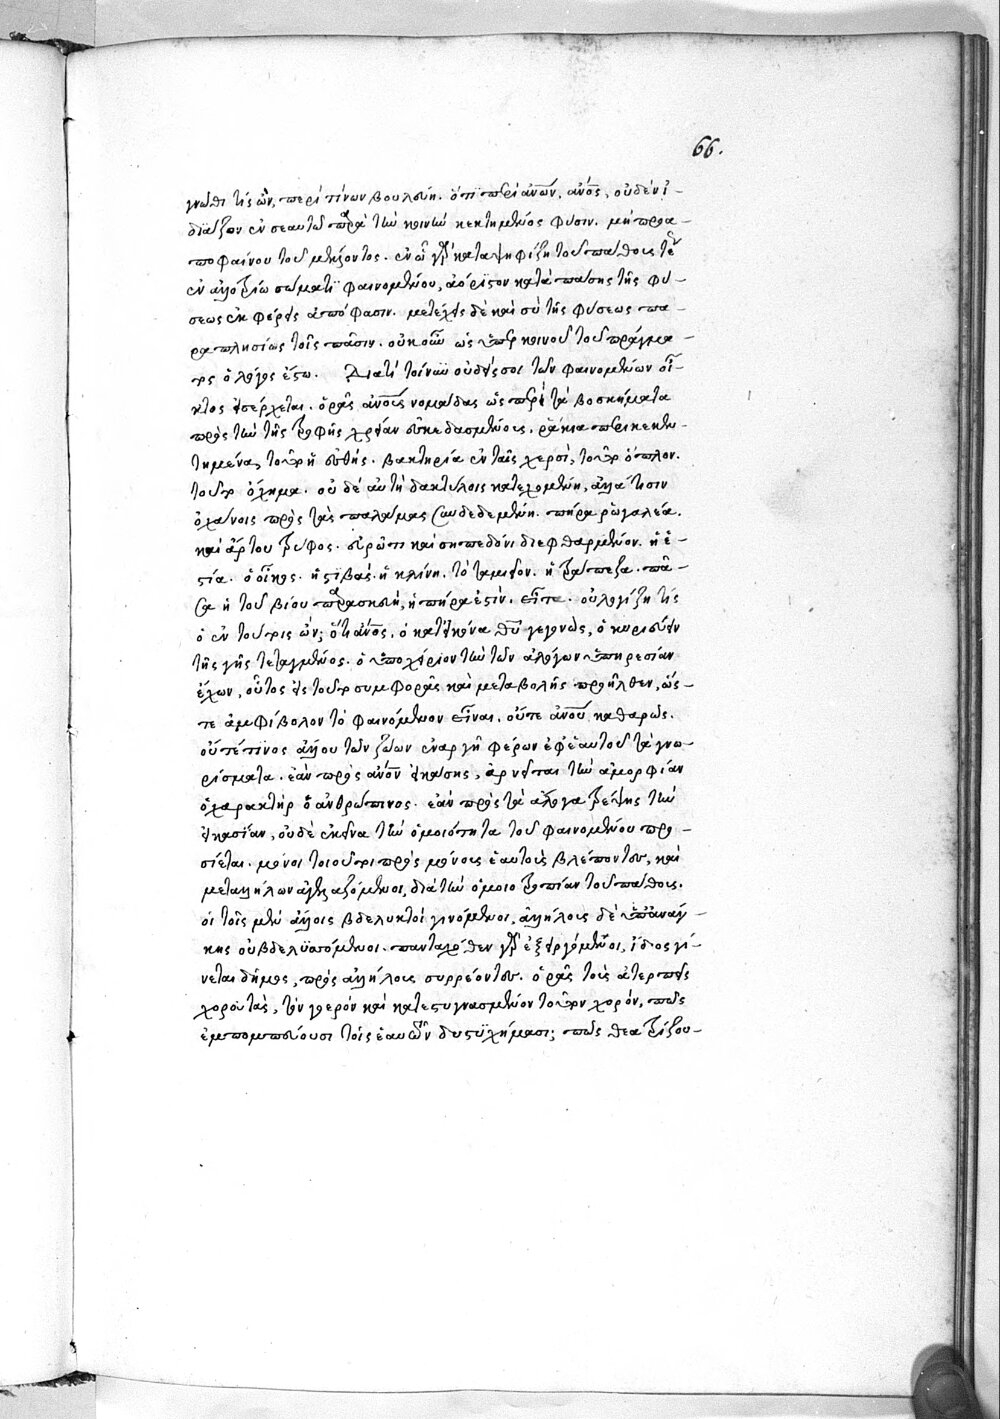 66.
γνῶθι τίς ὢν, περὶ τίνων βουλεύῃ. ὅτι περὶ ἀνῶν, ἀνος, οὐδὲν ἰ-
διάζον ἐν σεαυτῷ παρὰ τὴν κοινὴν κεκτημένος φύσιν. μὴ προα-
ποφαίνου τοῦ μέλλοντος. ἐν ᾧ γὰρ καταψηφίζῃ τοῦ πάθους τοῦ
ἐν ἀλλοτρίῳ σώματι φαινομένου, ἀόριστον κατὰ πάσης τῆς φύ-
σεως ἐκφέρεις ἀπόφασιν. μετέχεις δὲ καὶ σὺ τῆς φύσεως πα-
ραπλησίως τοῖς πᾶσιν. οὐκοῦν ὡς ὑπὲρ κοινοῦ τοῦ πράγμα-
τος ὁ λόγος ἔστω. Διατί τοίνυν οὐδείς σοι τῶν φαινομένων οἶ-
κτος εἰσέρχεται. ὁρᾷς ἀνους νομάδας ὥσπερ τὰ βοσκήματα
πρὸς τὴν τῆς τροφῆς χρείαν συσκεδασμένους. ῥάκια περικεκεν-
τημένα, τούτων ἡ ἐσθής. βακτηρία ἐν ταῖς χερσὶ, τοῦτο ὅπλον.
τοῦτο ὄχημα. οὐδὲ αὐτὴ δακτύλοις κατεχομένη, ἀλλά τισιν
ὀχάνοις πρὸς τὰς παλάμας συνδεδεμένη. πήρα ῥωγαλέα.
καὶ ἄρτου τρύφος. εὐρῶτι καὶ σηπεδόνι διεφθαρμένον. ἡ ἑ-
στία. ὁ οἶκος. ἡ στιβάς. ἡ κλίνη. τὸ ταμεῖον. ἡ τράπεζα. πᾶ-
σα ἡ τοῦ βίου παρασκευὴ, ἡ πήρα ἐστίν. εἶτα. οὐ λογίζῃ τίς
ὁ ἐν τούτοις ὤν; ὅτι ἀνος, ὁ κατ' εἰκόνα θῦ γεγονὼς, ὁ κυριεύειν
τῆς γῆς τεταγμένος. ὁ ὑποχείριον τὴν τῶν ἀλόγων ὑπηρεσίαν
ἔχων, οὗτος εἰς τοῦτο συμφορᾶς καὶ μεταβολῆς προῆλθεν, ὥς-
τε ἀμφίβολον τὸ φαινόμενον εἶναι. οὔτε ἀνου καθαρῶς.
οὔτε τινος ἄλλου τῶν ζώων ἐναργῆ φέρων ἐφ' ἑαυτοῦ τὰ γνω-
ρίσματα. ἐὰν πρὸς ἀνον εἰκάσῃς, ἀρνεῖται τὴν ἀμορφίαν
ὁ χαρακτὴρ ὁ ἀνθρώπινος. ἐὰν πρὸς τὰ ἄλογα τρέψῃς τὴν
εἰκασίαν, οὐδὲ ἐκεῖνα τὴν ὁμοιότητα τοῦ φαινομένου προ-
σίεται. μόνοι τοιοῦτοι πρὸς μόνους ἑαυτοὺς βλέποντες, καὶ
μεταλλήλων ἀγελαζόμενοι, διὰ τὴν ὁμοιοτροπίαν τοῦ πάθους.
οἱ τοῖς μὲν ἄλλοις βδελυκτοὶ γινόμενοι, ἀλλήλους δὲ ὑπ' ἀνάγ-
κης οὐ βδελυσσόμενοι. πανταχόθεν γὰρ ἐξειργόμενοι, ἴδιος γί-
νεται δῆμος, πρὸς ἀλλήλους συρρέοντες. ὁρᾷς τοὺς ἀτερπεῖς
χορευτὰς, τὸν γοερὸν καὶ κατεστυγνασμένον τοῦτον χορόν, πῶς
ἐμπομπεύουσι τοῖς ἑαυτῶν δυστυχήμασι; πῶς θεατρίζου-